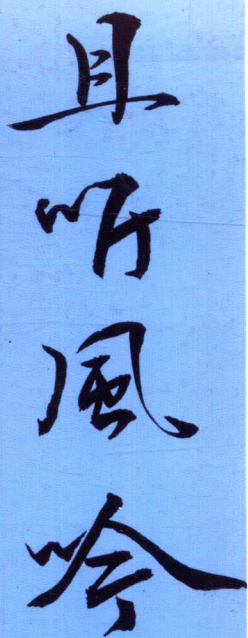 且听風吟